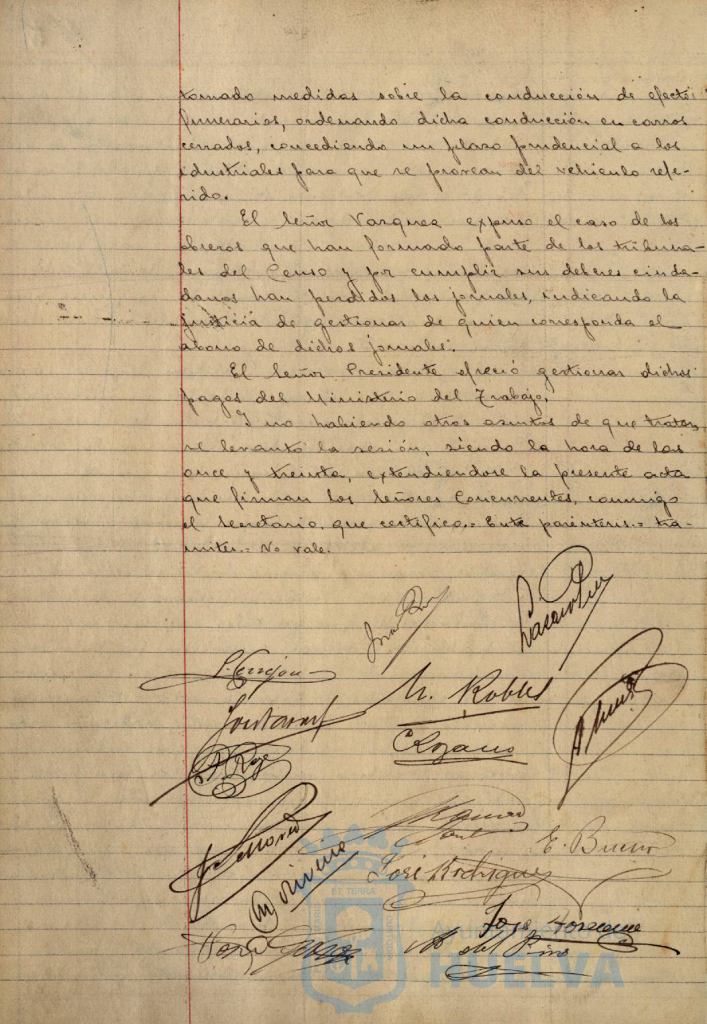 tomado medidas sobre la conducción de efectos
funerarios, ordenando dicha conducción en carros
cerrados, concediendo un plazo prudencial a los
industriales para que se provean del vehiculo refe-
rido.
El Señor Vazquez expuso el caso de los
obreros que han formado parte de los tribuna-
les del Censo y por cumplir sus deberes ciuda-
danos han perdidos los jornales, indicando la
justicia de gestionar de quien corresponda el
abono de dichos jornales.
El Señor Presidente ofreció gestionar dichos
pagos del Ministerio del Trabajo.
Y no habiendo otros asuntos de que tratar,
se levantó la sesión, siendo la hora de las
once y treinta, extendiendose la presente acta
que firman los Señores Concurrentes, conmigo
el Secretario, que certifico.= Entre parentesis.= tra-
mites.= No vale.
M. Robles
E. Bueno
José Rodriguez
M. del Pino
ET TERRA
HUELVA